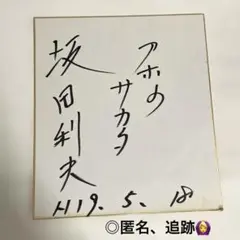 アホの
サカタ
坂田利夫
H19. 5. 18
◎匿名、追跡🙆‍♀️